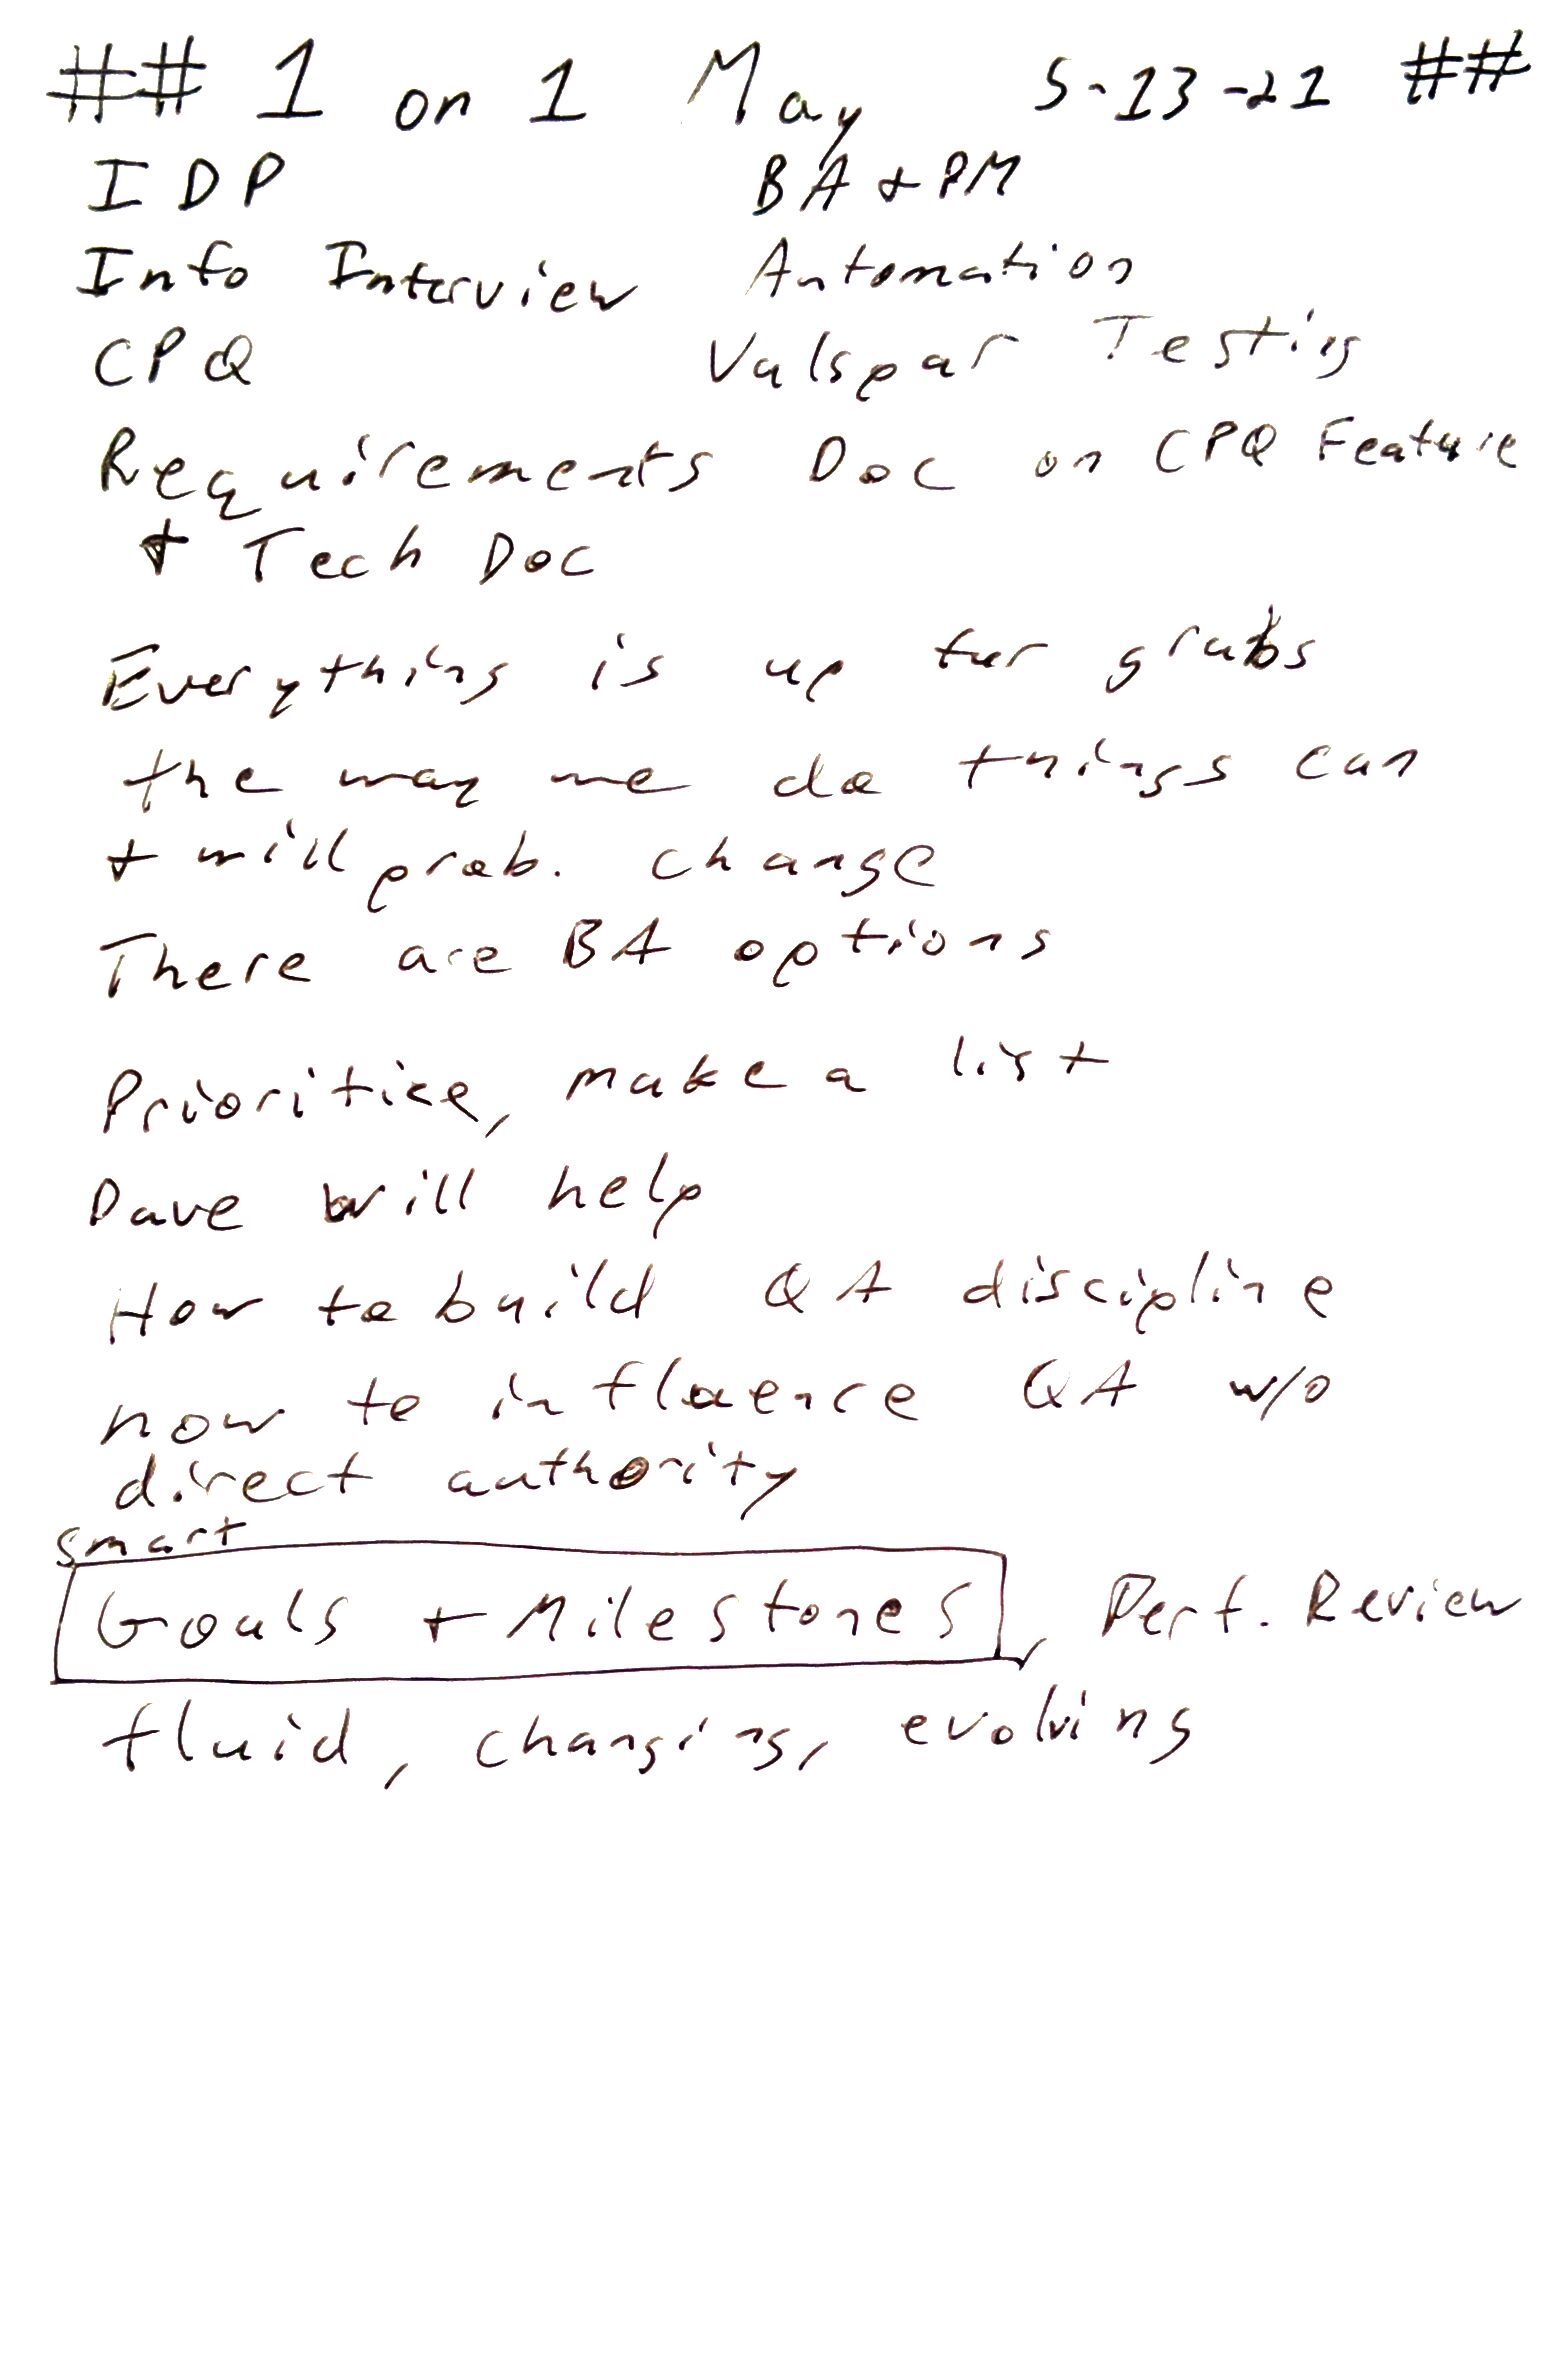 ## 1 on 1 May 5-13-21 ##
IDP BA + PM
Info Interview Automation
CPQ Valspar Testing
Requirements Doc on CPQ Feature
+ Tech Doc
Everything is up for grabs
the way we do things can
+ will prob. change
There are BA options
Prioritize, make a list
Dave will help
How to build QA discipline
how to influence QA w/o
direct authority
smart
Goals + Milestones, Perf. Review
fluid, changing, evolving